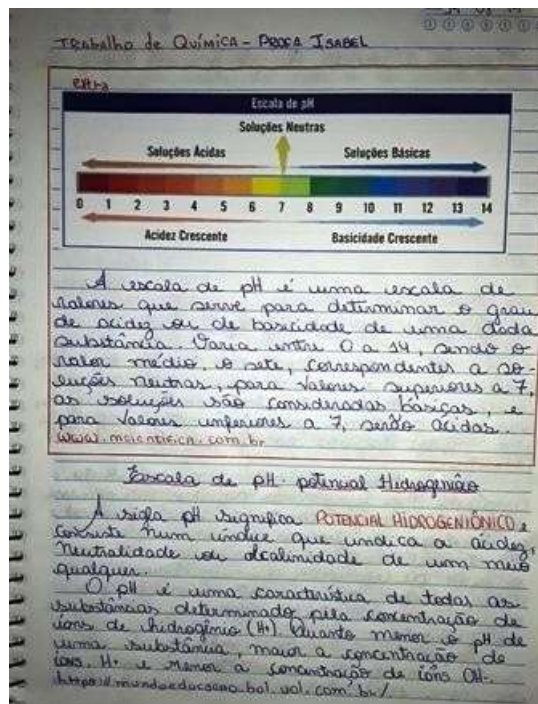 Trabalho de Química - Profa Isabel
extra
Escala de pH
Soluções Neutras
Soluções Ácidas Soluções Básicas
0 1 2 3 4 5 6 7 8 9 10 11 12 13 14
Acidez Crescente Basicidade Crescente
A escala de pH é uma escala de
valores que serve para determinar o grau
de acidez ou de basicidade de uma dada
substância. Varia entre 0 a 14, sendo o
valor médio, o sete, correspondentes a so-
luções neutras, para valores superiores a 7,
as soluções são consideradas básicas, e
para valores inferiores a 7, serão ácidas.
www.mcientifica.com.br
Escala de pH: potencial Hidrogeniônico
A sigla pH significa POTENCIAL HIDROGENIÔNICO e
consiste num índice que indica a acidez,
neutralidade ou alcalinidade de um meio
qualquer.
O pH é uma característica de todas as
substâncias determinado pela concentração de
íons de hidrogênio (H+). Quanto menor o pH de
uma substância, maior a concentração de
íons H+ e menor a concentração de íons OH-.
https://mundoeducacao.bol.uol.com.br/